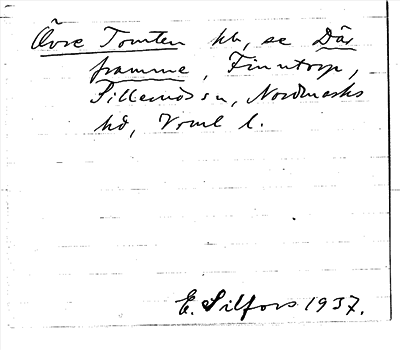 Övre Tomten hb, se Där
framme, Finntorp,
Sillerud sn, Nordmarks
hd, Vrml l.
E. Silfors 1937.